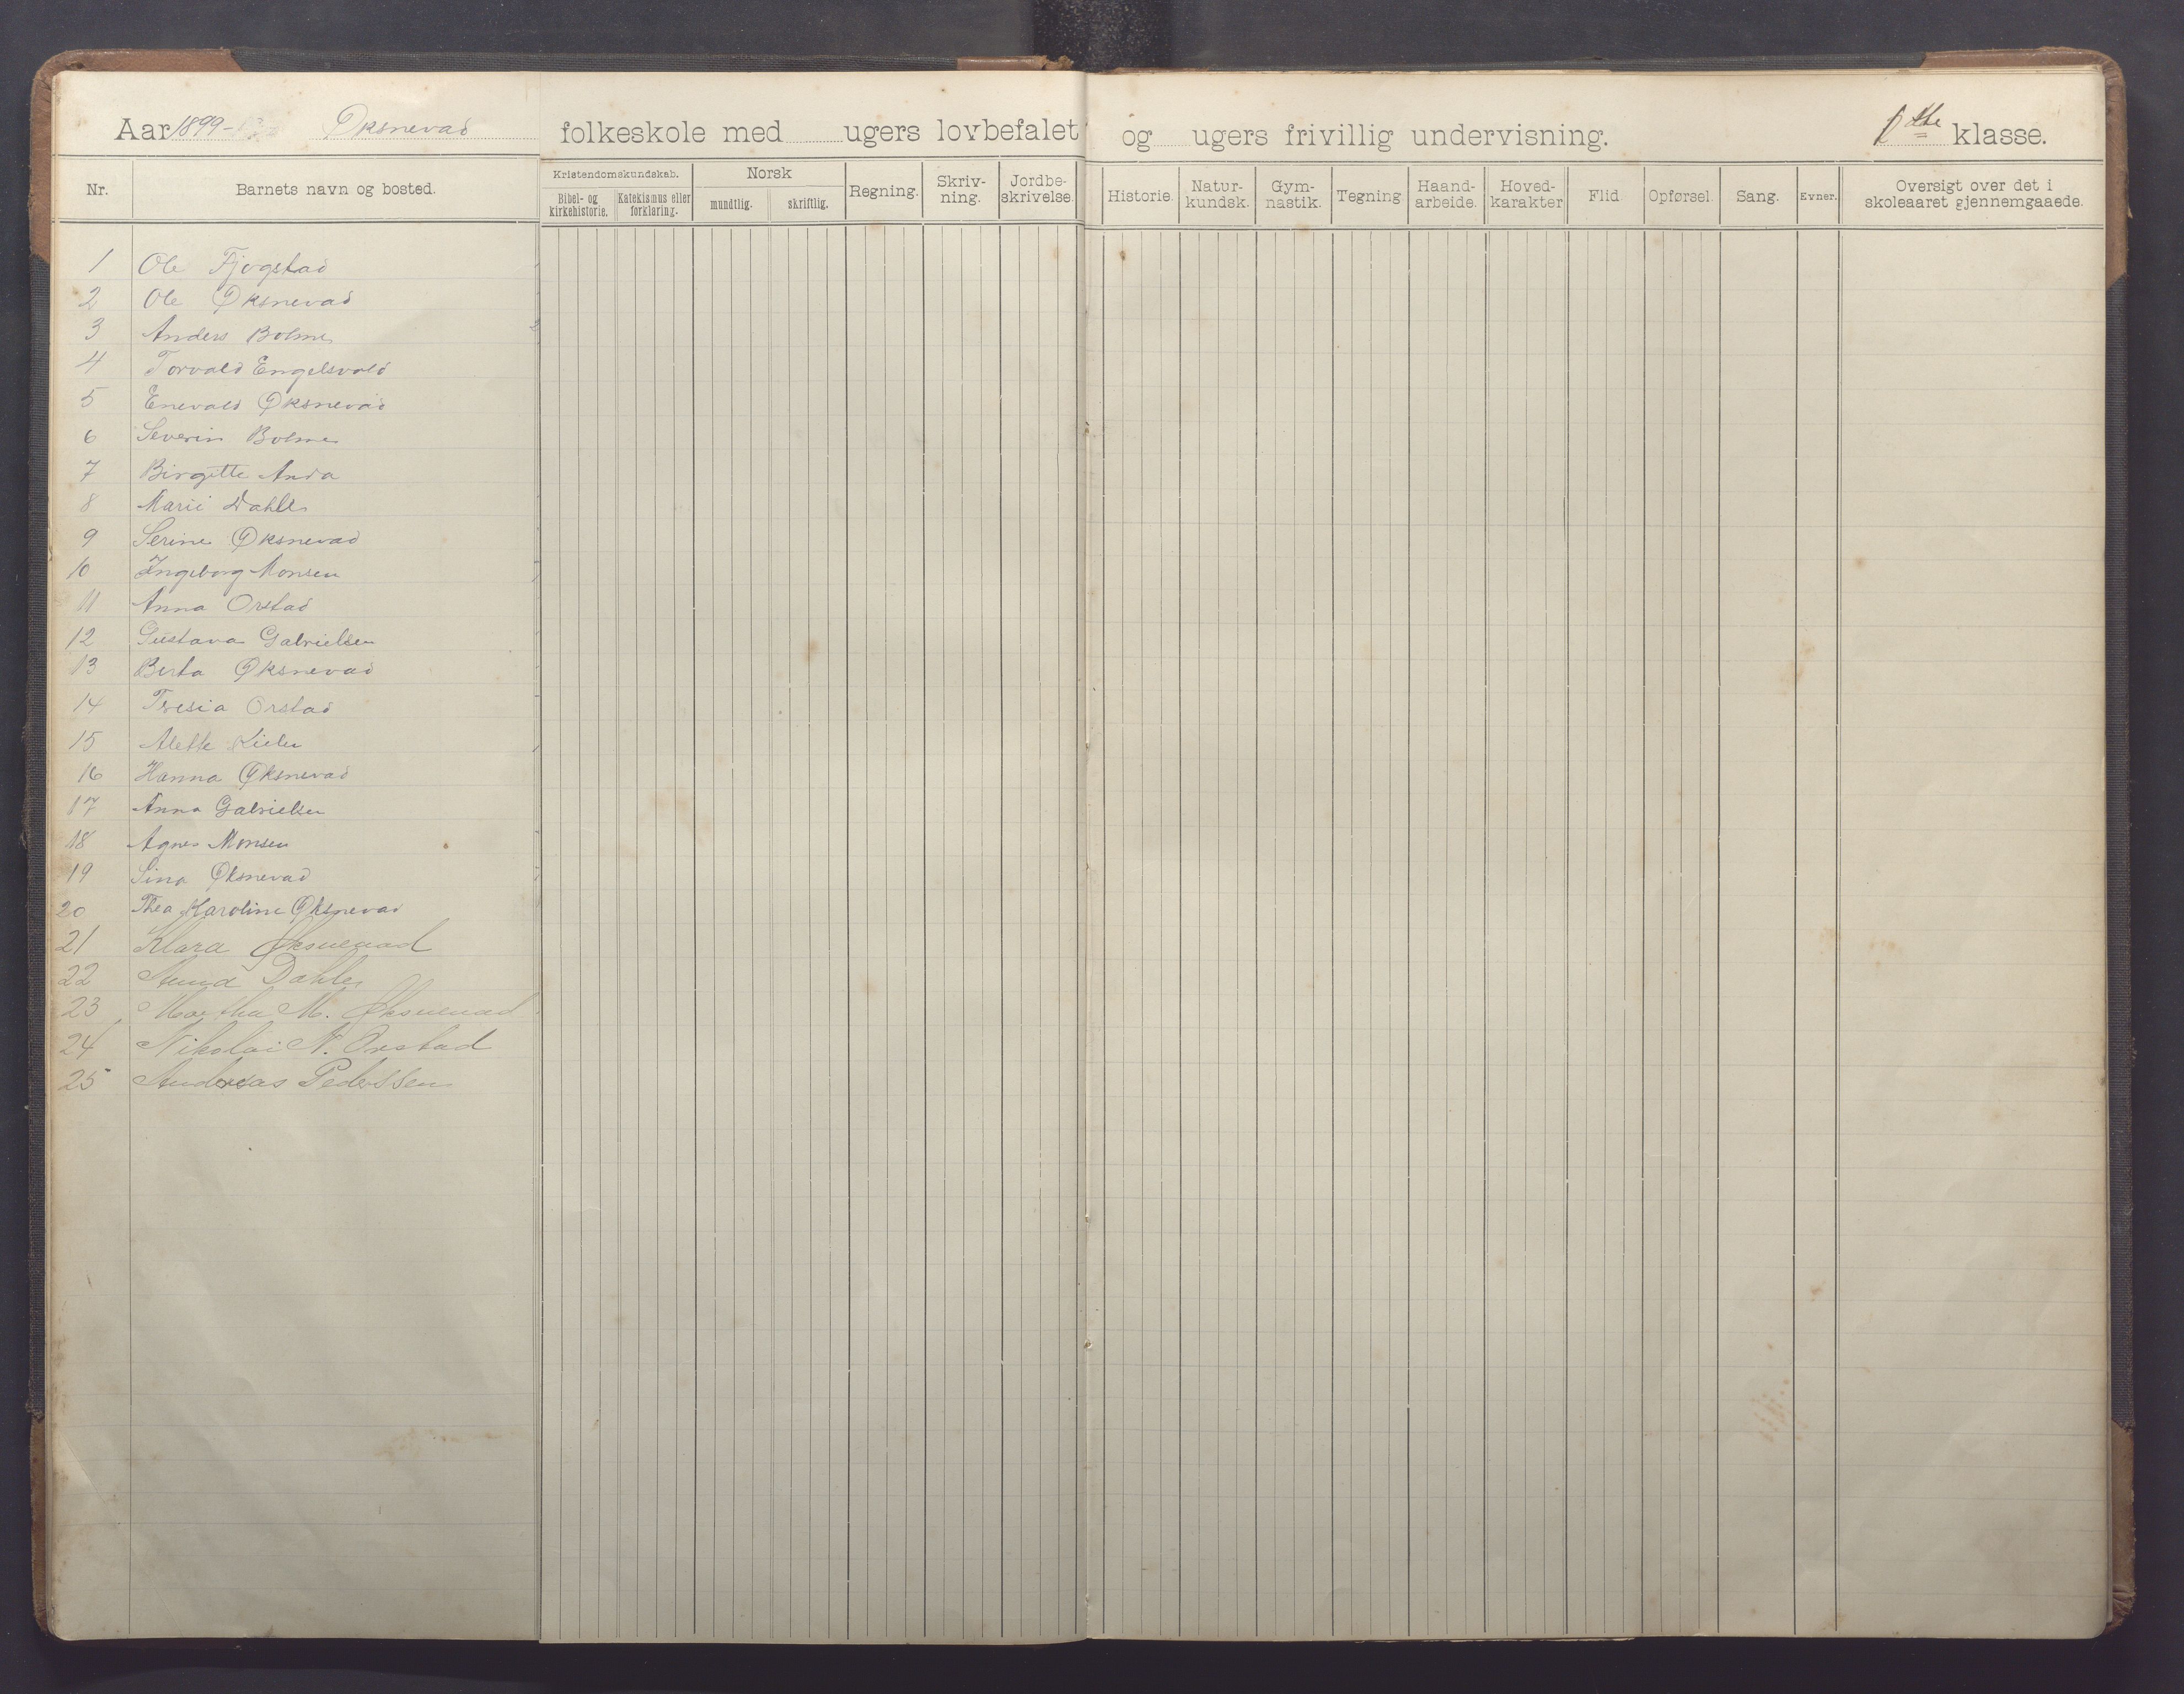 Aar 1899- Øksnevad folkeskole med ugers lovbefalet og ugers frivillig undervisning. klasse.
Nr. Barnets navn og bosted. Kristendomskundskab. Norsk Regning. Skriv-ning. Jordbe-skrivelse. Historie. Natur-kundsk. Gym-nastik. Tegning Haand-arbeide. Hoved-karakter Flid Opførsel. Sang. Evner. Oversigt over det i skoleaaret gjennemgaaede.
Bibel- og kirkehistorie. Katekismus eller forklaring. mundtlig. skriftlig.
1 Ole Fjogstad
2 Ole Øksnevad
3 Anders Bolme
4 Torvald Engelsvold
5 Enevald Øksnevad
6 Severin Bolme
7 Birgitte Anda
8 Marie Dahle
9 Serine Øksnevad
10 Ingeborg Monsen
11 Anna Orstad
12 Gustava Gabrielsen
13 Berta Øksnevad
14 Tresia Orstad
15 Alette
16 Hanna Øksnevad
17 Anna Gabrielsen
18 Agnes Monsen
19 Sina Øksnevad
20 Thea Karoline Øksnevad
21 Klara Øksnevad
22 Anna Dahle
23 Martha M. Øksnevad
24 Nikolai N. Orstad
25 Andreas Pederssen